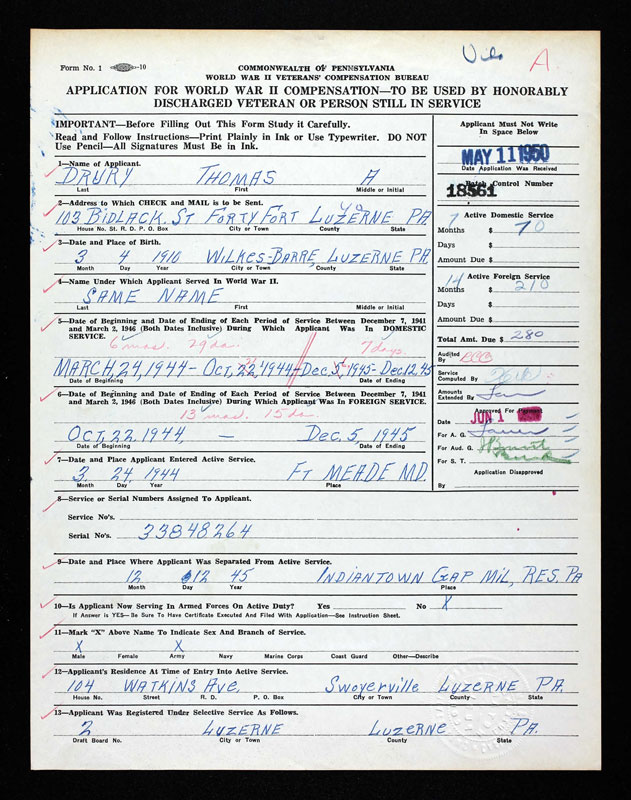 A
Form No. 1 -10
COMMONWEALTH OF PENNSYLVANIA
WORLD WAR II VETERANS' COMPENSATION BUREAU
APPLICATION FOR WORLD WAR II COMPENSATION—TO BE USED BY HONORABLY
DISCHARGED VETERAN OR PERSON STILL IN SERVICE
IMPORTANT—Before Filling Out This Form Study it Carefully.
Read and Follow Instructions—Print Plainly in Ink or Use Typewriter. DO NOT
Use Pencil—All Signatures Must Be in Ink.
Applicant Must Not Write
In Space Below
MAY 11 1950
Date Application Was Received
Batch Control Number
18561
1—Name of Applicant.
DRURY THOMAS A
Last First Middle or Initial
2—Address to Which CHECK and MAIL is to be Sent.
103 BIDLACK. ST FORTY FORT LUZERNE PA
House No. St. R. D. P. O. Box City or Town County State
3—Date and Place of Birth.
3 4 1910 WILKES-BARRE LUZERNE PA
Month Day Year City or Town County State
4—Name Under Which Applicant Served In World War II.
SAME NAME
Last First Middle or Initial
5—Date of Beginning and Date of Ending of Each Period of Service Between December 7, 1941
and March 2, 1946 (Both Dates Inclusive) During Which Applicant Was In DOMESTIC
SERVICE.
6 mos. 29 da. 7 days.
MARCH, 24, 1944 - OCT, 22, 1944, - DEC, 5, 1945 - DEC 12, 45
Date of Beginning Date of Ending
6—Date of Beginning and Date of Ending of Each Period of Service Between December 7, 1941
and March 2, 1946 (Both Dates Inclusive) During Which Applicant Was In FOREIGN SERVICE.
13 mos. 15 da.
OCT, 22, 1944, — DEC, 5, 1945
Date of Beginning Date of Ending
7—Date and Place Applicant Entered Active Service.
3 24, 1944 FT MEADE MD.
Month Day Year Place
8—Service or Serial Numbers Assigned To Applicant.
Service No's.
Serial No's. 33848264
9—Date and Place Where Applicant Was Separated From Active Service.
12 12 45 INDIANTOWN GAP MIL, RES, PA
Month Day Year Place
10—Is Applicant Now Serving In Armed Forces On Active Duty? Yes No X
If Answer is YES—Be Sure To Have Certificate Executed And Filed With Application—See Instruction Sheet.
11—Mark "X" Above Name To Indicate Sex and Branch of Service.
X X
Male Female Army Navy Marine Corps Coast Guard Other—Describe
12—Applicant's Residence At Time of Entry Into Active Service.
104 WATKINS AVE, SWOYERVILLE LUZERNE PA.
House No. Street R. D. P. O. Box City or Town County State
13—Applicant Was Registered Under Selective Service As Follows.
2 LUZERNE LUZERNE PA.
Draft Board No. City or Town County State
Active Domestic Service
7
Months $ 70
Days $
Amount Due $
Active Foreign Service
14
Months $ 210
Days $
Amount Due $
Total Amt. Due $ 280
Audited
By
Service
Computed By
Amounts
Extended By
Approved For Payment
Date JUN 1
For A. G.
For Aud. G.
For S. T.
Application Disapproved
By